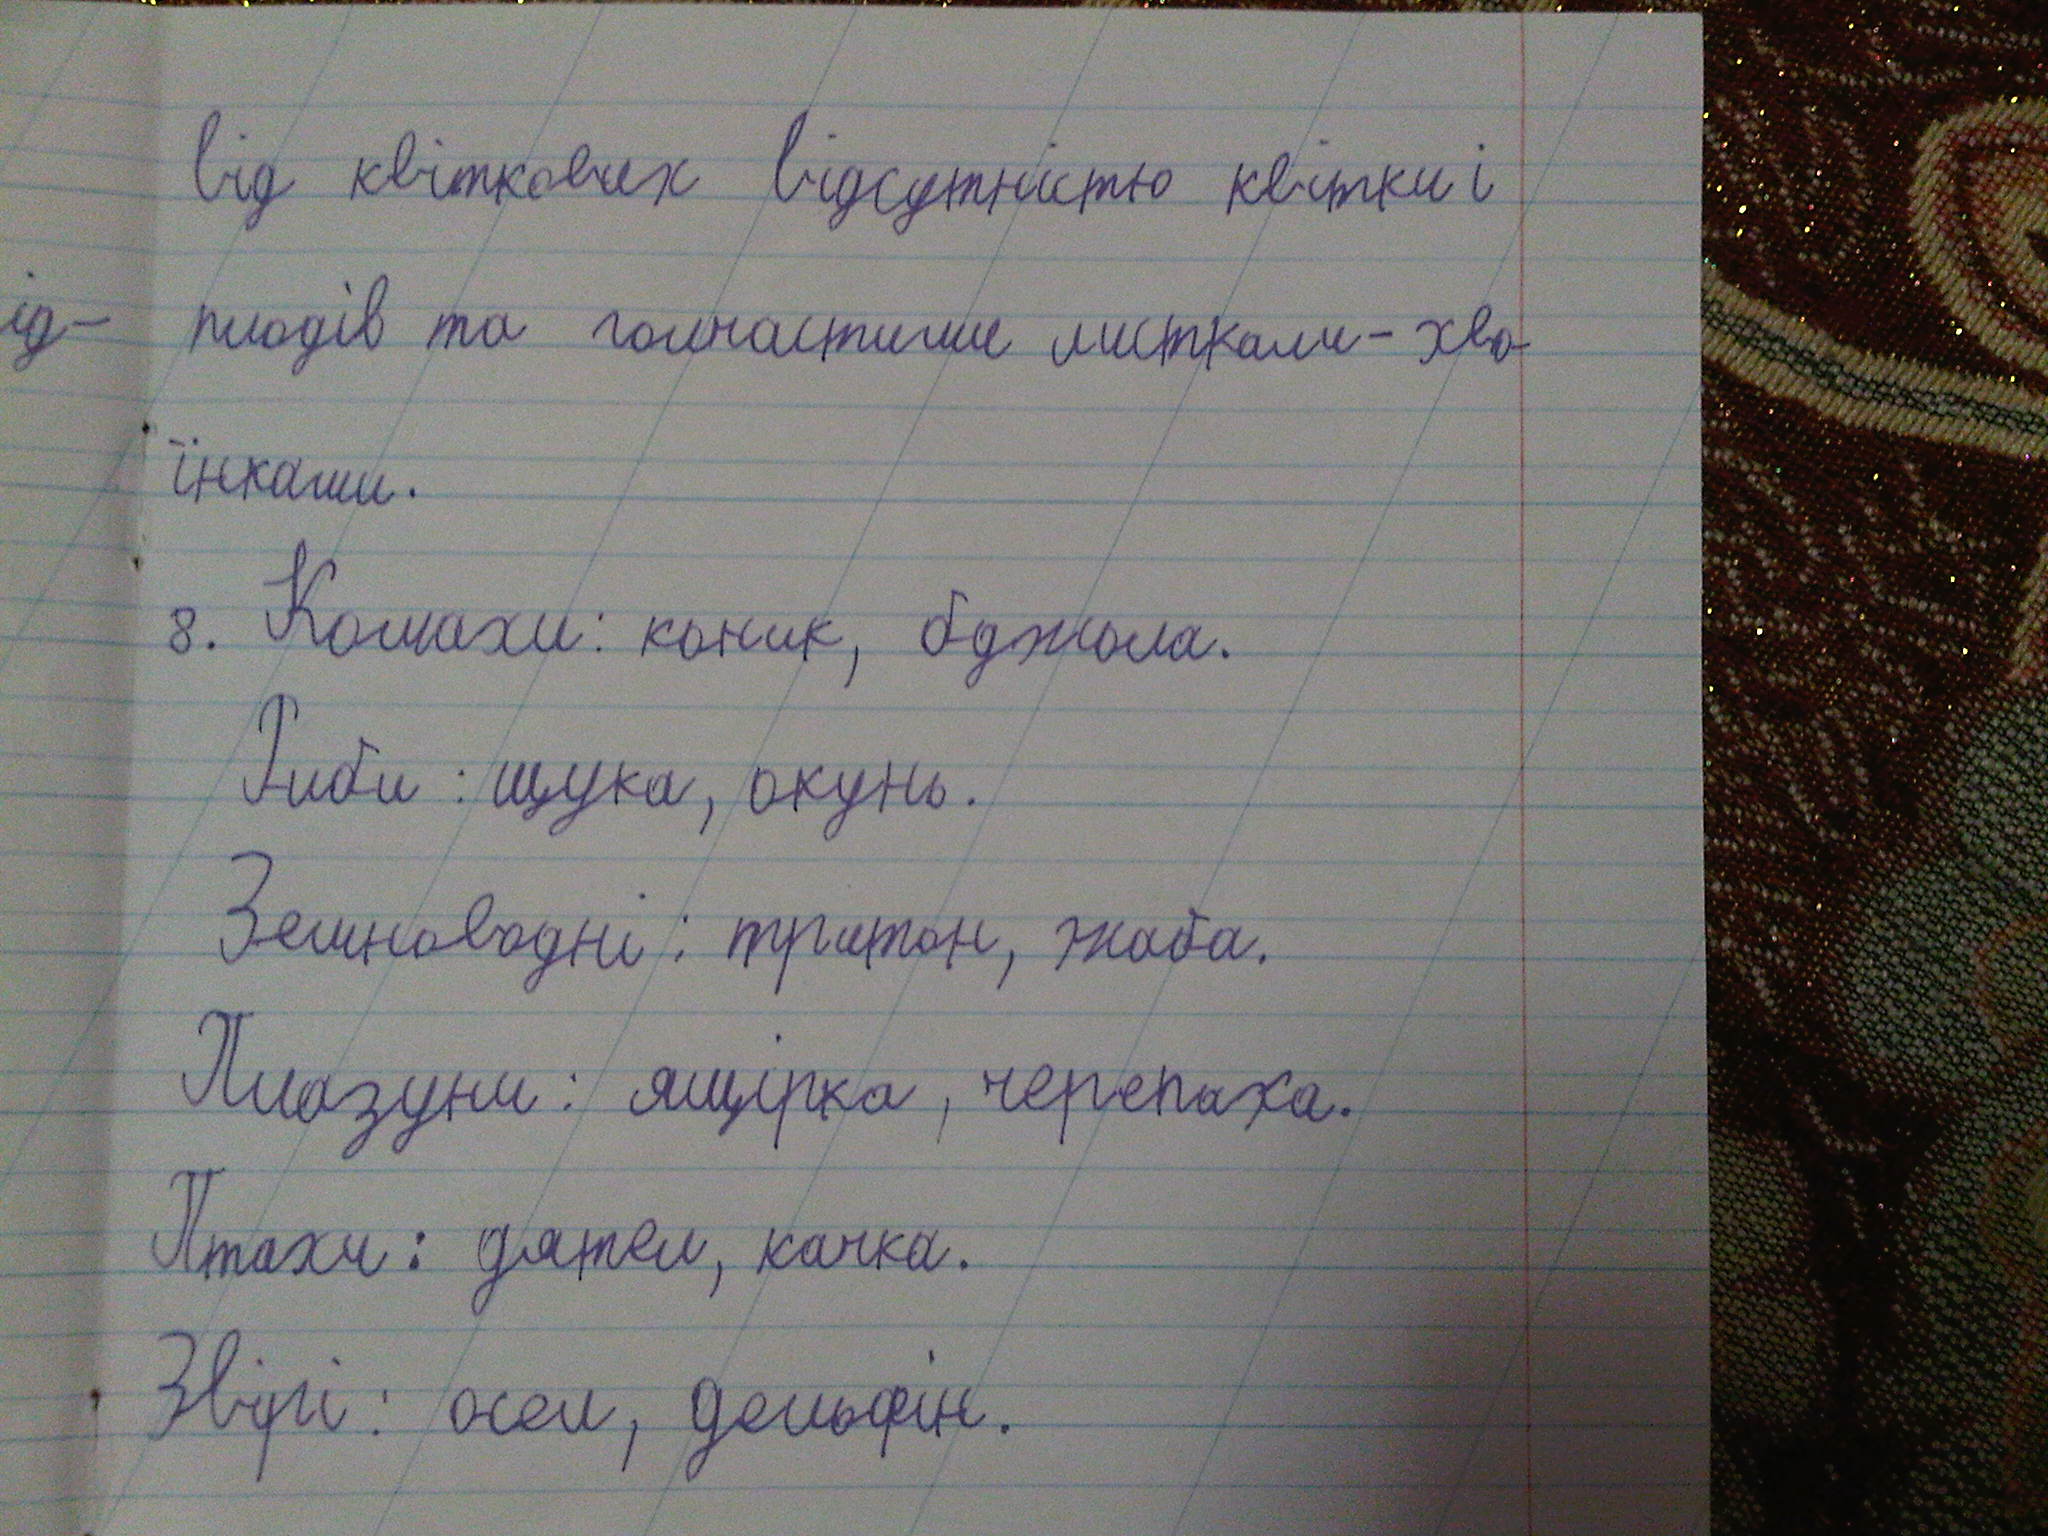 від квіткових відсутністю квітки і
ід- плодів та голчастими листками-хво-
їнками.
8. Комахи: коник, бджола.
Риби: щука, окунь.
Земноводні: тритон, жаба.
Плазуни: ящірка, черепаха.
Птахи: дятел, качка.
Звірі: осел, дельфін.